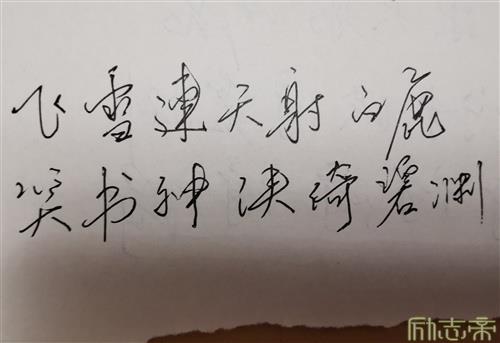 飞雪連天射白鹿
笑书神侠绮碧渊
励志帝